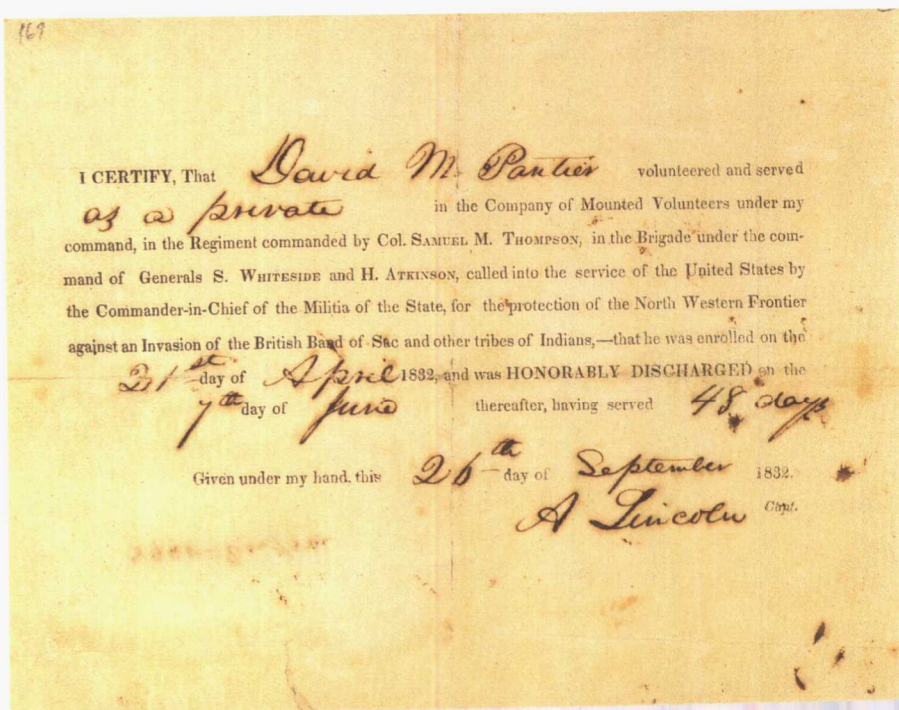 169
I CERTIFY, That David M. Pantier volunteered and served
as a private in the Company of Mounted Volunteers under my
command, in the Regiment commanded by Col. SAMUEL M. THOMPSON, in the Brigade under the com-
mand of Generals S. WHITESIDE and H. ATKINSON, called into the service of the United States by
the Commander-in-Chief of the Militia of the State, for the protection of the North Western Frontier
against an Invasion of the British Band of Sac and other tribes of Indians,—that he was enrolled on the
21st day of April 1832, and was HONORABLY DISCHARGED on the
7th day of June thereafter, having served 48 days
Given under my hand, this 26th day of September 1832.
A Lincoln Capt.